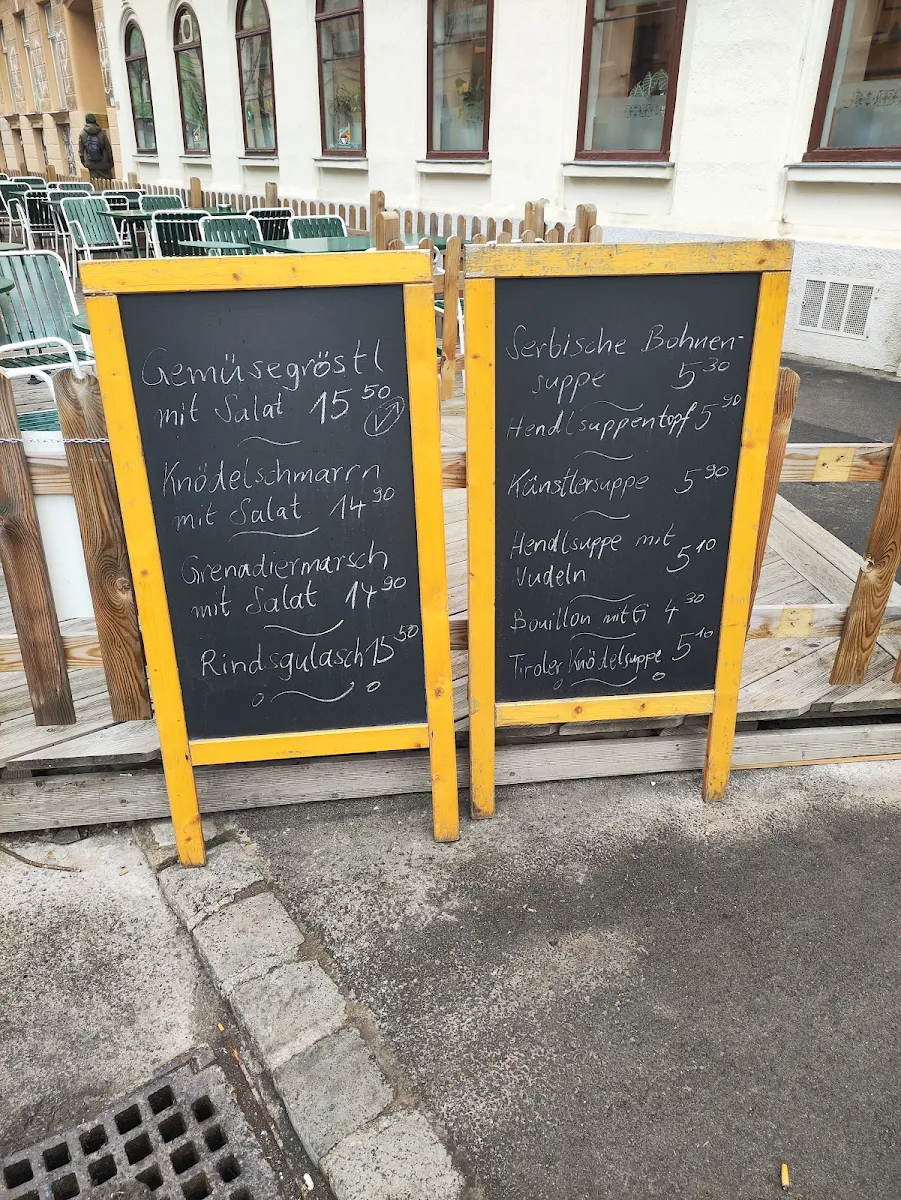 Gemüsegröstl
mit Salat 15 50
Knödelschmarrn
mit Salat 14 90
Grenadiermarsch
mit Salat 14 90
Rindsgulasch 15 50
Serbische Bohnen-
suppe 5 30
Hendlsuppentopf 5 90
Künstlersuppe 5 90
Hendlsuppe mit
Nudeln 5 10
Bouillon mit Ei 4 30
Tiroler Knödelsuppe 5 10